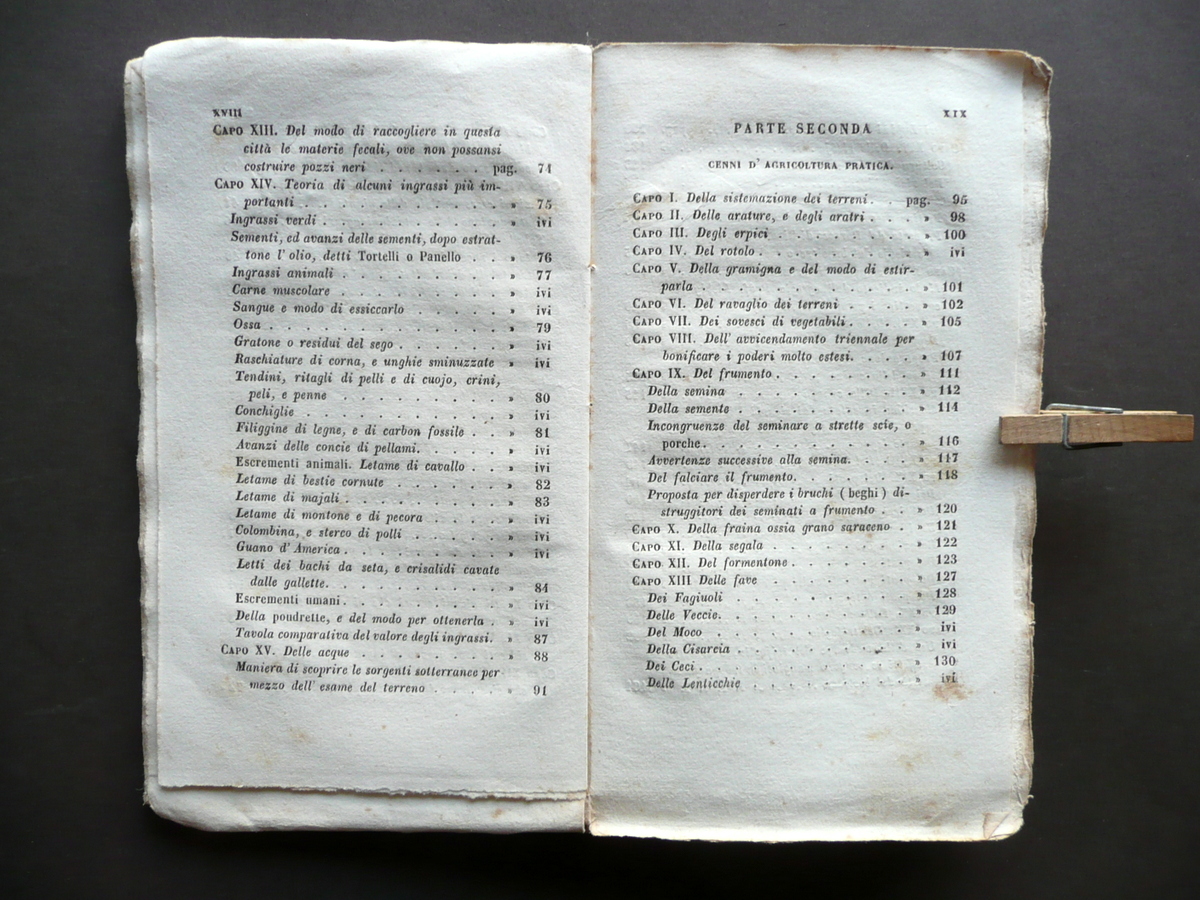 XVIII
CAPO XIII. Del modo di raccogliere in questa
città le materie fecali, ove non possansi
costruire pozzi neri . . . . . . pag. 74
CAPO XIV. Teoria di alcuni ingrassi più im-
portanti . . . . . . . . . . » 75
Ingrassi verdi . . . . . . . . . . » ivi
Sementi, ed avanzi delle sementi, dopo estrat-
tone l'olio, detti Tortelli o Panello . . » 76
Ingrassi animali . . . . . . . . . » 77
Carne muscolare . . . . . . . . . » ivi
Sangue e modo di essiccarlo . . . . . » ivi
Ossa . . . . . . . . . . . . . » 79
Gratone o residui del sego . . . . . . » ivi
Raschiature di corna, e unghie sminuzzate » ivi
Tendini, ritagli di pelli e di cuojo, crini,
peli, e penne . . . . . . . . . » 80
Conchiglie . . . . . . . . . . . » ivi
Filiggine di legne, e di carbon fossile . . » 81
Avanzi delle concie di pellami. . . . . » ivi
Escrementi animali. Letame di cavallo . . » ivi
Letame di bestie cornute . . . . . . » 82
Letame di majali . . . . . . . . . » 83
Letame di montone e di pecora . . . . » ivi
Colombina, e sterco di polli . . . . . » ivi
Guano d'America . . . . . . . . . » ivi
Letti dei bachi da seta, e crisalidi cavate
dalle gallette. . . . . . . . . . » 84
Escrementi umani. . . . . . . . . » ivi
Della poudrette, e del modo per ottenerla . » ivi
Tavola comparativa del valore degli ingrassi. » 87
CAPO XV. Delle acque . . . . . . . . » 88
Maniera di scoprire le sorgenti sotterranee per
mezzo dell'esame del terreno . . . . » 91
XIX
PARTE SECONDA
CENNI D'AGRICOLTURA PRATICA.
CAPO I. Della sistemazione dei terreni. . pag. 95
CAPO II. Delle arature, e degli aratri . . . » 98
CAPO III. Degli erpici . . . . . . . . » 100
CAPO IV. Del rotolo . . . . . . . . . » ivi
CAPO V. Della gramigna e del modo di estir-
parla . . . . . . . . . . . . » 101
CAPO VI. Del ravaglio dei terreni . . . . » 102
CAPO VII. Dei sovesci di vegetabili. . . . » 105
CAPO VIII. Dell'avvicendamento triennale per
bonificare i poderi molto estesi. . . . » 107
CAPO IX. Del frumento . . . . . . . . » 111
Della semina . . . . . . . . . . » 112
Della semente . . . . . . . . . . » 114
Incongruenze del seminare a strette scie, o
porche. . . . . . . . . . . . » 116
Avvertenze successive alla semina. . . . » 117
Del falciare il frumento. . . . . . . » 118
Proposta per disperdere i bruchi (beghi) di-
struggitori dei seminati a frumento . . » 120
CAPO X. Della fraina ossia grano saraceno . » 121
CAPO XI. Della segala . . . . . . . . » 122
CAPO XII. Del formentone . . . . . . . » 123
CAPO XIII Delle fave . . . . . . . . » 127
Dei Fagiuoli . . . . . . . . . . » 128
Delle Veccie. . . . . . . . . . . » 129
Del Moco . . . . . . . . . . . » ivi
Della Cisarcia . . . . . . . . . . » ivi
Dei Ceci . . . . . . . . . . . . » 130
Delle Lenticchie . . . . . . . . . » ivi